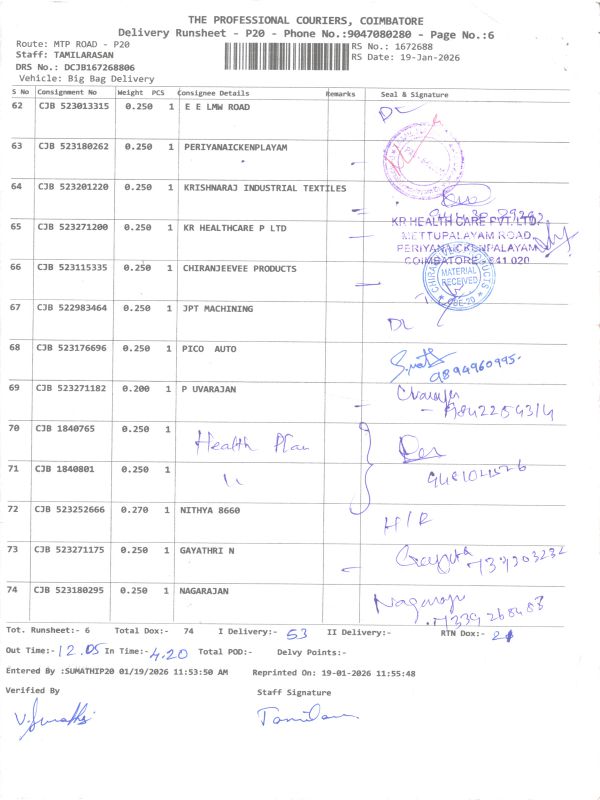 THE PROFESSIONAL COURIERS, COIMBATORE
Delivery Runsheet - P20 - Phone No.:9047080280 - Page No.:6
Route: MTP ROAD - P20
RS No.: 1672688
Staff: TAMILARASAN
RS Date: 19-Jan-2026
DRS No.: DCJB167268806
Vehicle: Big Bag Delivery
S No Consignment No Weight PCS Consignee Details Remarks Seal & Signature
62 CJB 523013315 0.250 1 E E LMW ROAD DL
63 CJB 523180262 0.250 1 PERIYANAICKENPLAYAM
64 CJB 523201220 0.250 1 KRISHNARAJ INDUSTRIAL TEXTILES
65 CJB 523271200 0.250 1 KR HEALTHCARE P LTD
KR HEALTH CARE PVT. LTD.
METTUPALAYAM ROAD,
PERIYANAICKENPALAYAM
COIMBATORE - 641 020
66 CJB 523115335 0.250 1 CHIRANJEEVEE PRODUCTS
MATERIAL
RECEIVED
CBE-20
67 CJB 522983464 0.250 1 JPT MACHINING DL
68 CJB 523176696 0.250 1 PICO AUTO
9894960995
69 CJB 523271182 0.200 1 P UVARAJAN
70 CJB 1840765 0.250 1 Health Plan
71 CJB 1840801 0.250 1 "
72 CJB 523252666 0.270 1 NITHYA 8660 H/R
73 CJB 523271175 0.250 1 GAYATHRI N
74 CJB 523180295 0.250 1 NAGARAJAN Nagaraju
7339268483
Tot. Runsheet:- 6 Total Dox:- 74 I Delivery:- 53 II Delivery:- RTN Dox:- 21
Out Time:- 12.05 In Time:- 4.20 Total POD:- Delvy Points:-
Entered By :SUMATHIP20 01/19/2026 11:53:50 AM Reprinted On: 19-01-2026 11:55:48
Verified By Staff Signature
V. Sumathi Tamilan